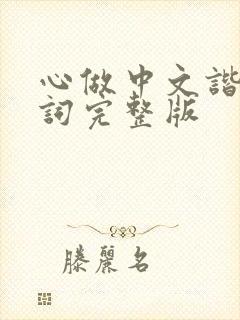 心做中文諧
詞完整版
滕麗名